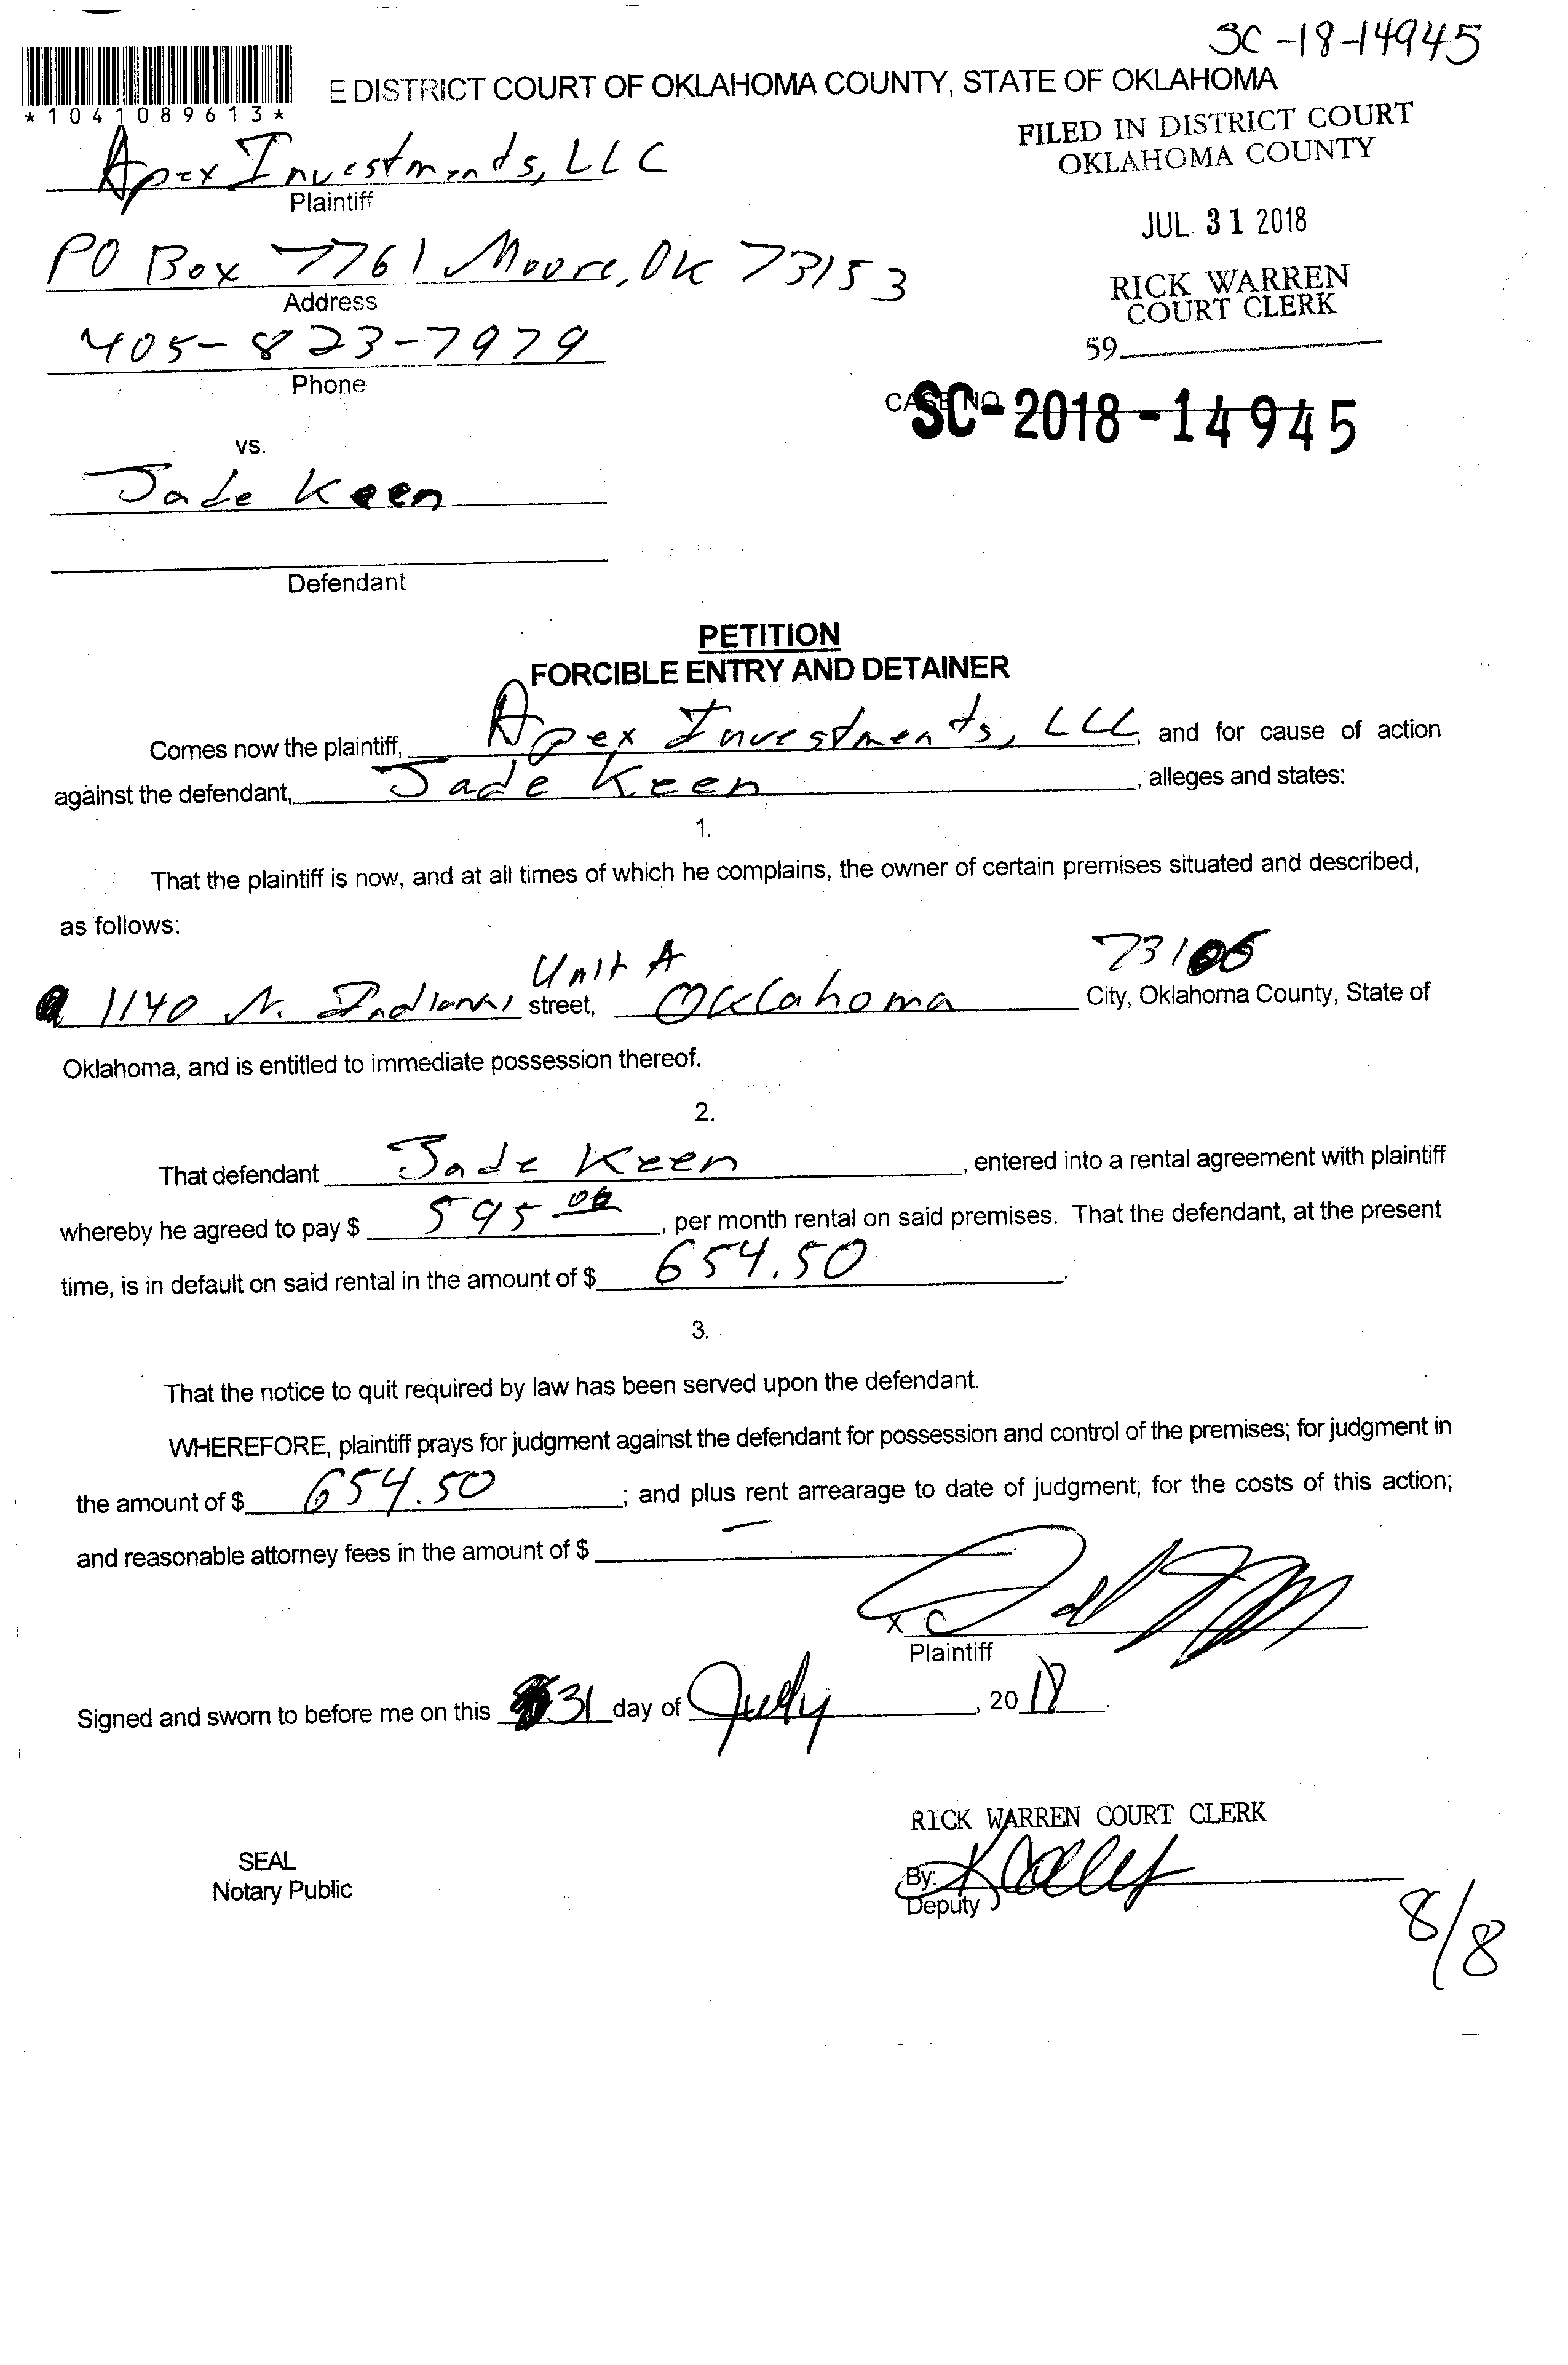 SC-18-14945
E DISTRICT COURT OF OKLAHOMA COUNTY, STATE OF OKLAHOMA
*1041089613*
FILED IN DISTRICT COURT
OKLAHOMA COUNTY
Apex Investments, LLC
Plaintiff
JUL 31 2018
PO Box 7761 Moore, OK 73153
Address
RICK WARREN
COURT CLERK
405-823-7979
59
Phone
CASE NO. SC-2018-14945
vs.
Jade Keen
Defendant
PETITION
FORCIBLE ENTRY AND DETAINER
Comes now the plaintiff, Apex Investments, LLC, and for cause of action
against the defendant, Jade Keen, alleges and states:
1.
That the plaintiff is now, and at all times of which he complains, the owner of certain premises situated and described,
as follows:
Unit A 73106
1140 N. street, Oklahoma City, Oklahoma County, State of
Oklahoma, and is entitled to immediate possession thereof.
2.
That defendant Jade Keen, entered into a rental agreement with plaintiff
whereby he agreed to pay $ 595 00, per month rental on said premises. That the defendant, at the present
time, is in default on said rental in the amount of $ 654.50.
3.
That the notice to quit required by law has been served upon the defendant.
WHEREFORE, plaintiff prays for judgment against the defendant for possession and control of the premises; for judgment in
the amount of $ 654.50; and plus rent arrearage to date of judgment; for the costs of this action;
and reasonable attorney fees in the amount of $ —.
X
Plaintiff
Signed and sworn to before me on this 31 day of July, 2018.
RICK WARREN COURT CLERK
SEAL
Notary Public
By:
Deputy
8/8